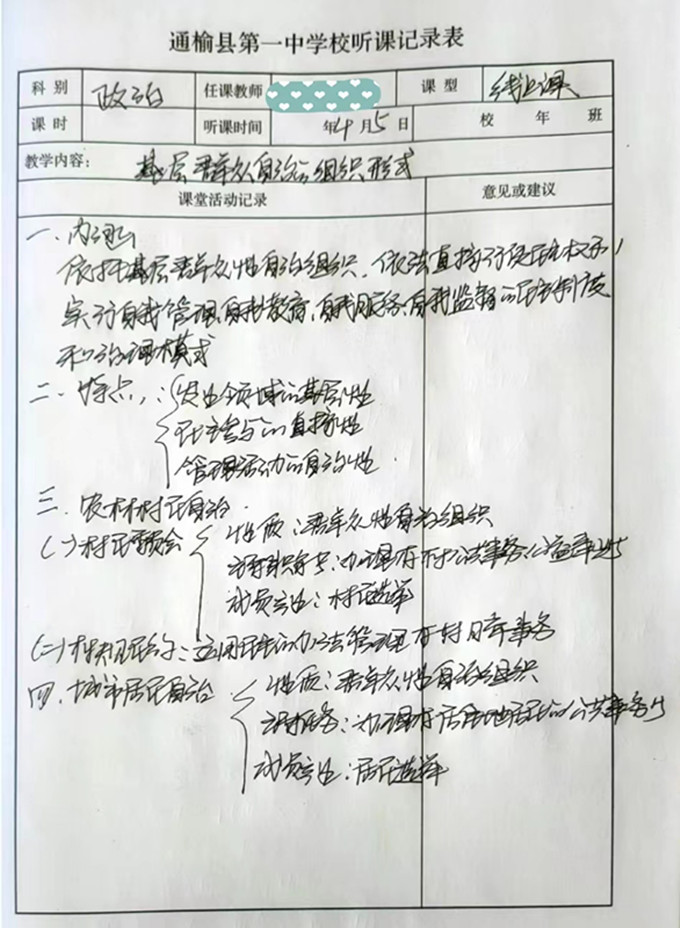 通榆县第一中学校听课记录表
科别 政治 任课教师 课型 线上课
课时 听课时间 年4月5日 校 年 班
教学内容: 基层群众自治的组织形式
课堂活动记录 意见或建议
一、内涵
依托基层群众性自治组织,依法直接行使民主权利,
实行自我管理、自我教育、自我服务、自我监督的民主制度
和治理模式
二、特点:发生领域的基层性
民主参与的直接性
管理活动的自治性
三、农村村民自治
(一)村民委员会 性质:群众性自治组织
办理本村公共事务公益事业
成员产生:村民选举
(二)村规民约:立用民主的办法管理本村日常事务
四、城市居民自治 性质:群众性自治组织
办理本居住地居民的公共事务
成员产生:居民选举